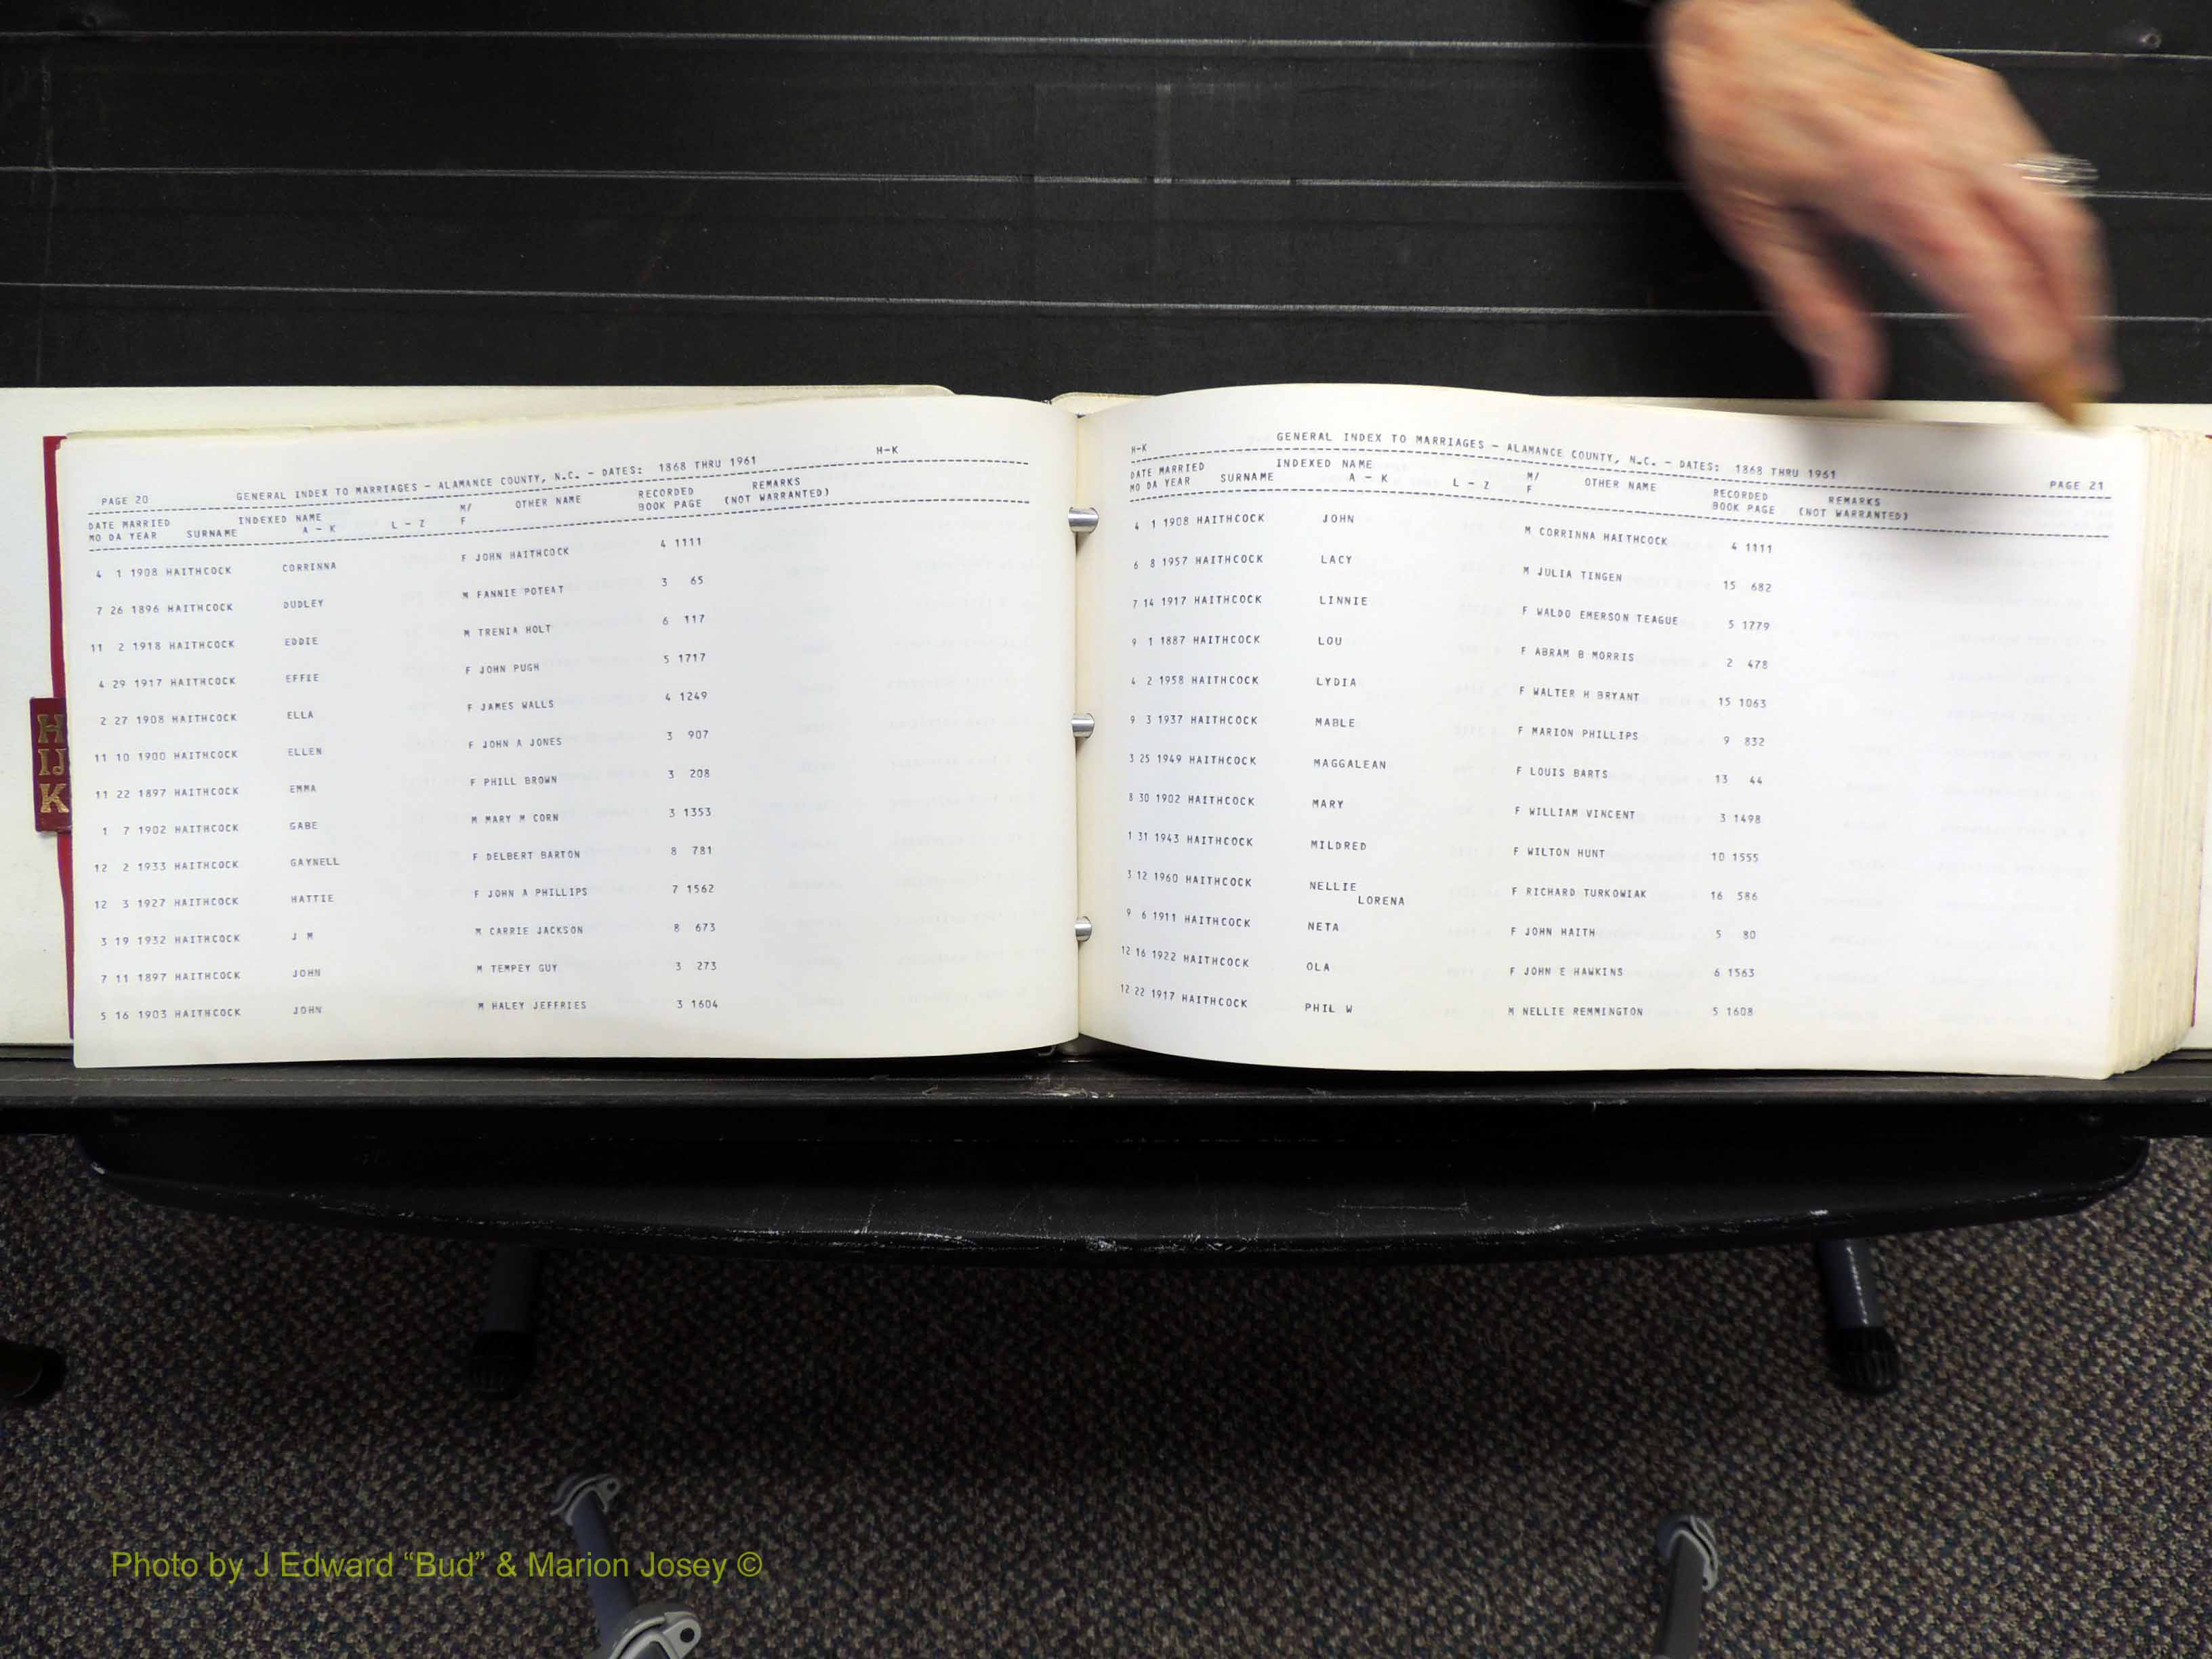 H
IJ
K
H-K
PAGE 20 GENERAL INDEX TO MARRIAGES - ALAMANCE COUNTY, N.C. - DATES: 1868 THRU 1961
DATE MARRIED INDEXED NAME M/ OTHER NAME RECORDED REMARKS
MO DA YEAR SURNAME A - K L - Z F BOOK PAGE (NOT WARRANTED)
4 1 1908 HAITHCOCK CORRINNA F JOHN HAITHCOCK 4 1111
7 26 1896 HAITHCOCK DUDLEY M FANNIE POTEAT 3 65
11 2 1918 HAITHCOCK EDDIE M TRENIA HOLT 6 117
4 29 1917 HAITHCOCK EFFIE F JOHN PUGH 5 1717
2 27 1908 HAITHCOCK ELLA F JAMES WALLS 4 1249
11 10 1900 HAITHCOCK ELLEN F JOHN A JONES 3 907
11 22 1897 HAITHCOCK EMMA F PHILL BROWN 3 208
1 7 1902 HAITHCOCK GABE M MARY M CORN 3 1353
12 2 1933 HAITHCOCK GAYNELL F DELBERT BARTON 8 781
12 3 1927 HAITHCOCK HATTIE F JOHN A PHILLIPS 7 1562
3 19 1932 HAITHCOCK J M M CARRIE JACKSON 8 673
7 11 1897 HAITHCOCK JOHN M TEMPEY GUY 3 273
5 16 1903 HAITHCOCK JOHN M HALEY JEFFRIES 3 1604
H-K GENERAL INDEX TO MARRIAGES - ALAMANCE COUNTY, N.C. - DATES: 1868 THRU 1961 PAGE 21
DATE MARRIED INDEXED NAME M/ OTHER NAME RECORDED REMARKS
MO DA YEAR SURNAME A - K L - Z F BOOK PAGE (NOT WARRANTED)
4 1 1908 HAITHCOCK JOHN M CORRINNA HAITHCOCK 4 1111
6 8 1957 HAITHCOCK LACY M JULIA TINGEN 15 682
7 14 1917 HAITHCOCK LINNIE F WALDO EMERSON TEAGUE 5 1779
9 1 1887 HAITHCOCK LOU F ABRAM B MORRIS 2 478
4 2 1958 HAITHCOCK LYDIA F WALTER H BRYANT 15 1063
9 3 1937 HAITHCOCK MABLE F MARION PHILLIPS 9 832
3 25 1949 HAITHCOCK MAGGALEAN F LOUIS BARTS 13 44
8 30 1902 HAITHCOCK MARY F WILLIAM VINCENT 3 1498
1 31 1943 HAITHCOCK MILDRED F WILTON HUNT 10 1555
3 12 1960 HAITHCOCK NELLIE F RICHARD TURKOWIAK 16 586
LORENA
9 6 1911 HAITHCOCK NETA F JOHN HAITH 5 80
12 16 1922 HAITHCOCK OLA F JOHN E HAWKINS 6 1563
12 22 1917 HAITHCOCK PHIL W M NELLIE REMMINGTON 5 1608
Photo by J Edward “Bud” & Marion Josey ©